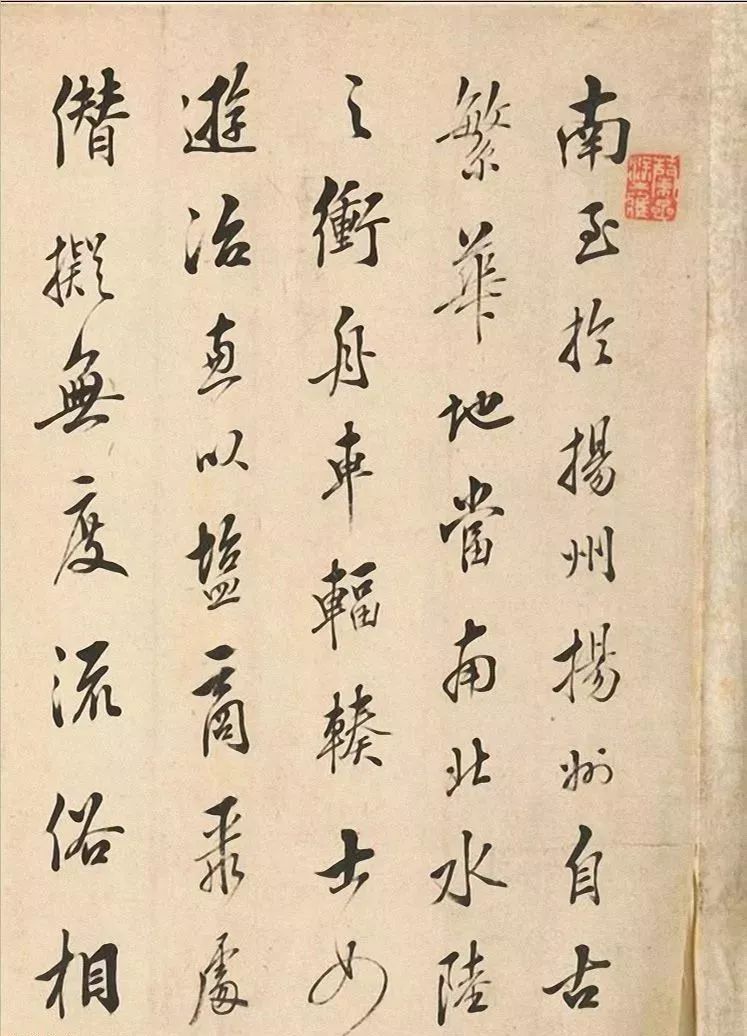 南至於揚州揚州自古
繁華地當南北水陸
之衝舟車輻輳士女
遊冶以塩商聚處
僭擬無度流俗相